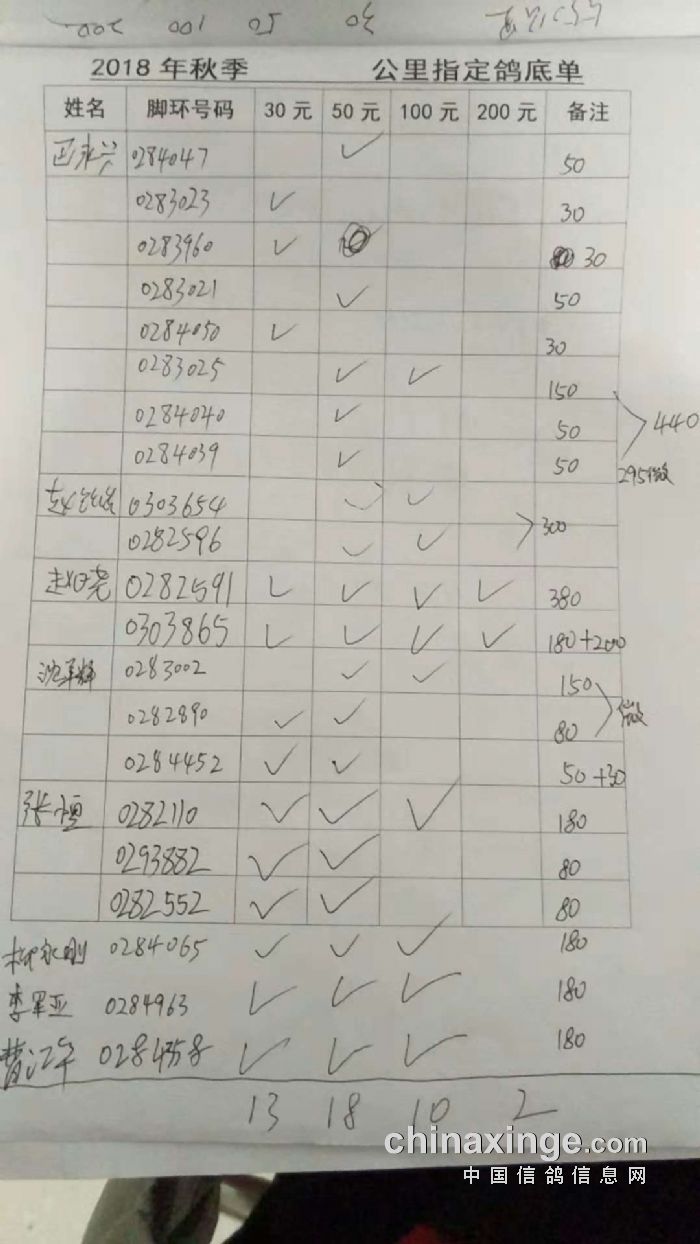 200 100 50 30
2018 年秋季 公里指定鸽底单
姓名 脚环号码 30 元 50 元 100 元 200 元 备注
永兴 0284047 ✓ 50
0283023 ✓ 30
0283960 ✓ 30
0283021 ✓ 50
0284050 ✓ 30
0283025 ✓ ✓ 150
0284040 ✓ 50 440
0284039 ✓ 50 295微
赵 0303654 ✓ ✓
0282596 ✓ ✓ 300
赵尧 0282591 ✓ ✓ ✓ ✓ 380
0303865 ✓ ✓ ✓ ✓ 180+200
沈军辉 0283002 ✓ ✓ 150
0282890 ✓ ✓ 80 微
0284452 ✓ ✓ 50+30
张恒 0282110 ✓ ✓ ✓ 180
0293882 ✓ ✓ 80
0282552 ✓ ✓ 80
柳永刚 0284065 ✓ ✓ ✓ 180
李军亚 0284963 ✓ ✓ ✓ 180
曹江军 0284358 ✓ ✓ ✓ 180
13 18 10 2
chinaxinge.com
中国信鸽信息网